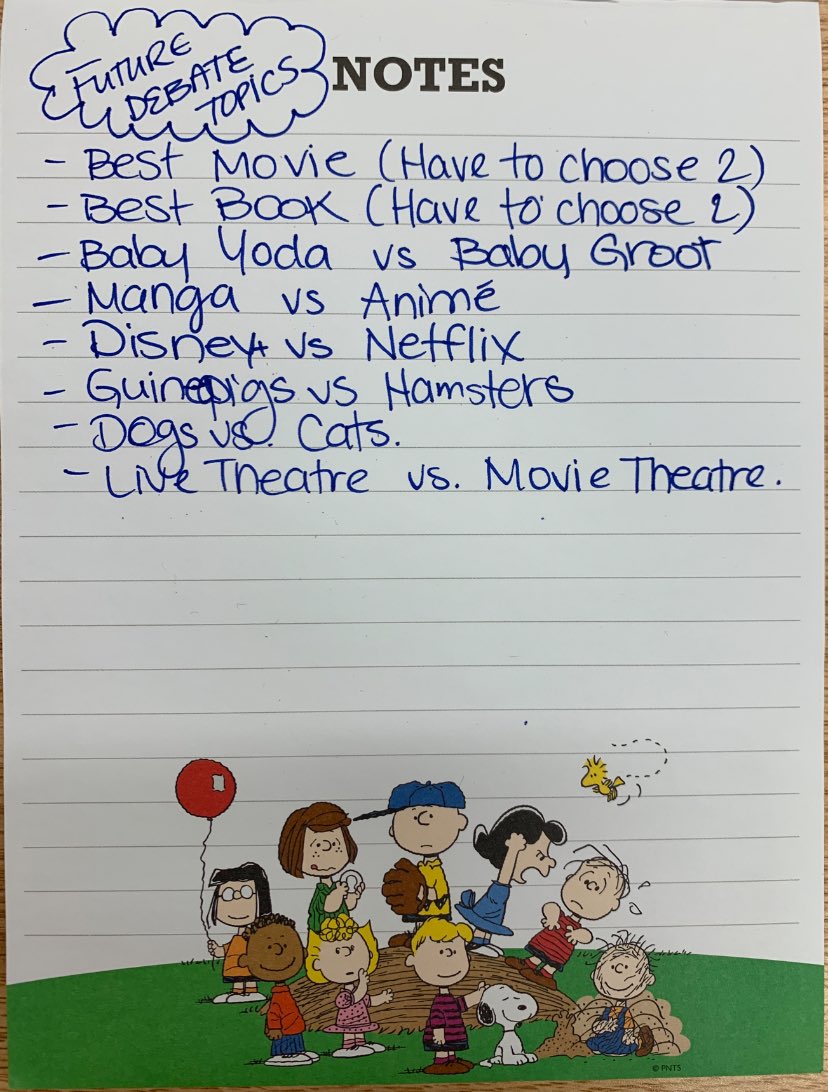 FUTURE
DEBATE
TOPICS
NOTES
- Best Movie (Have to choose 2)
- Best Book (Have to choose 2)
- Baby Yoda vs Baby Groot
- Manga vs Animé
- Disney+ vs Netflix
- Guineapigs vs Hamsters
- Dogs vs. Cats.
- Live Theatre vs. Movie Theatre.
© PNTS